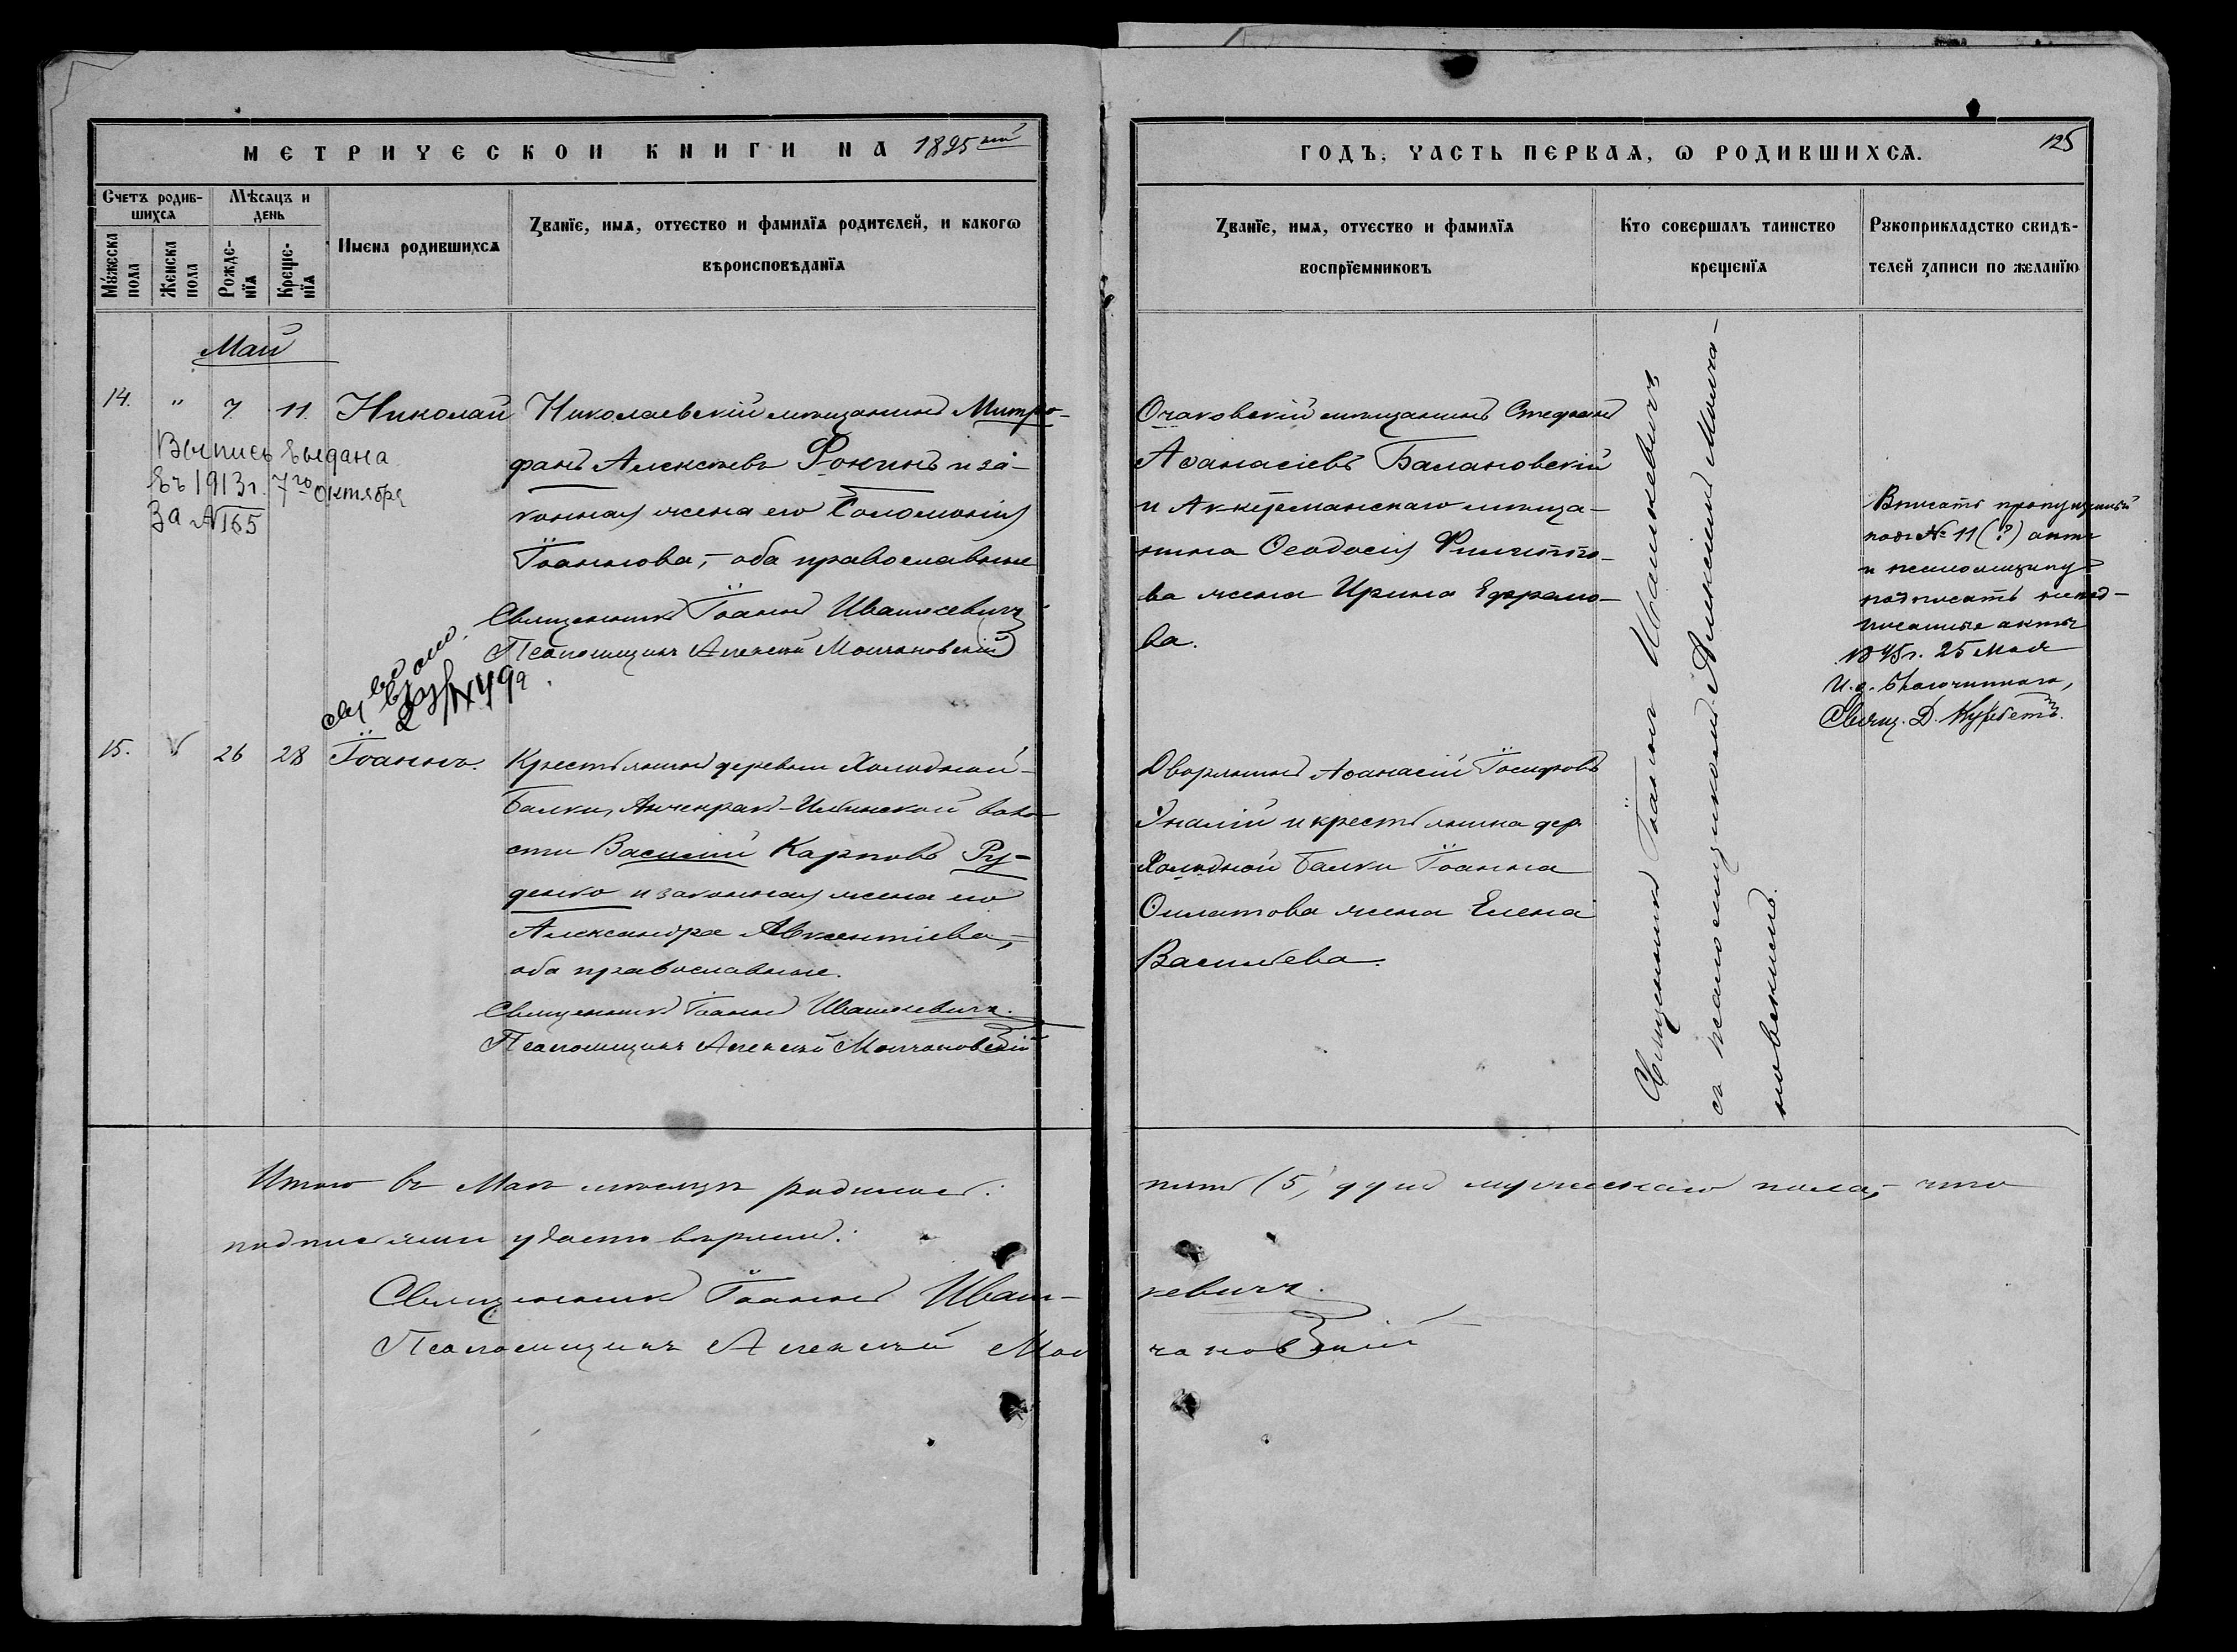 МЕТРИЧЕСКОЙ КНИГИ НА 1895 год
Счетъ родив-
шихся
Мѣсяцъ и
день
Мужеска
пола
Женска
пола
Рожде-
нія
Креще-
нія
Имена родившихся
Званіе, имя, отчество и фамилія родителей, и какогѡ
вѣроисповѣданія
Май
14. " 7. 11. Николай
Николаевскій мѣщанинъ Митро-
фанъ Алексѣевъ Фокинъ и за-
конная жена его Соломонія
Іоаннова, – оба православные
Священникъ Іоаннъ Ивашкевичъ
Псаломщикъ Алексѣй Молчановскій
Выпись выдана
въ 1913 г. 7го октября
За № 165
15. 26 28 Іоаннъ.
Крестьянинъ деревни Холодной-
Балки, Анчекрак-Ильинской воло-
сти Василій Карповъ Ру-
денко и законная жена его
Александра Авксентіева, –
оба православные.
Священникъ Іоаннъ Ивашкевичъ.
Псаломщикъ Алексѣй Молчановскій
Итого въ Маѣ мѣсяцѣ родилось:
подписями удостовѣряемъ:
Священникъ Іоаннъ Иваш-
Псаломщикъ Алексѣй Мол
ГОДЪ, ЧАСТЬ ПЕРВАЯ, Ѡ РОДИВШИХСЯ.
125
Званіе, имя, отчество и фамилія
воспріемниковъ
Кто совершалъ таинство
крещенія
Рукоприкладство свидѣ-
телей записи по желанію
Очаковскій мѣщанинъ Стефанъ
Аѳанасіевъ Балановскій
и Аккерманскаго мѣща-
нина Ѳеодосія Филиппо-
ва жена Ирина Ефремо-
ва.
Дворянинъ Аѳанасій Іосифовъ
и крестьянина дер.
Холодной Балки Іоанна
жена Елена
Васильева.
Священникъ Іоаннъ Ивашкевичъ
съ псаломщикомъ Алексѣемъ Молча-
новскимъ.
Вписать пропущенный
подъ № 11 (?) актъ
и псаломщику
подписать непод-
писанные акты
25 Мая
И. д. Благочиннаго,
Свящ. Д.
пять (5) душъ мужескаго пола, – что
кевичъ.
чановскій